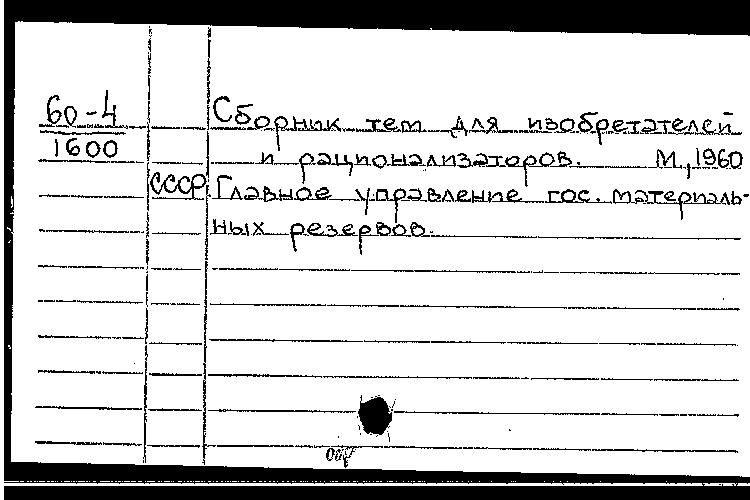 60-4 Сборник тем для изобретателей
1600 и рационализаторов. М., 1960
СССР. Главное управление гос. материаль-
ных резервов.